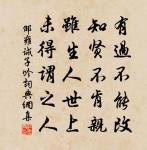 有過不能改
知賢不肯親
雖生人世上
未得謂之人
邵雍誡子吟詞典網集